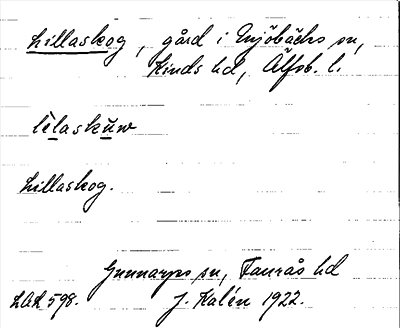 Lillaskog, gård i Mjöbäcks sn,
Kinds hd, Älfsb. l.
lìlaskŭw
Lillaskog.
Gunnarps sn, Faurås hd
LAL 598. J. Kalén 1922.